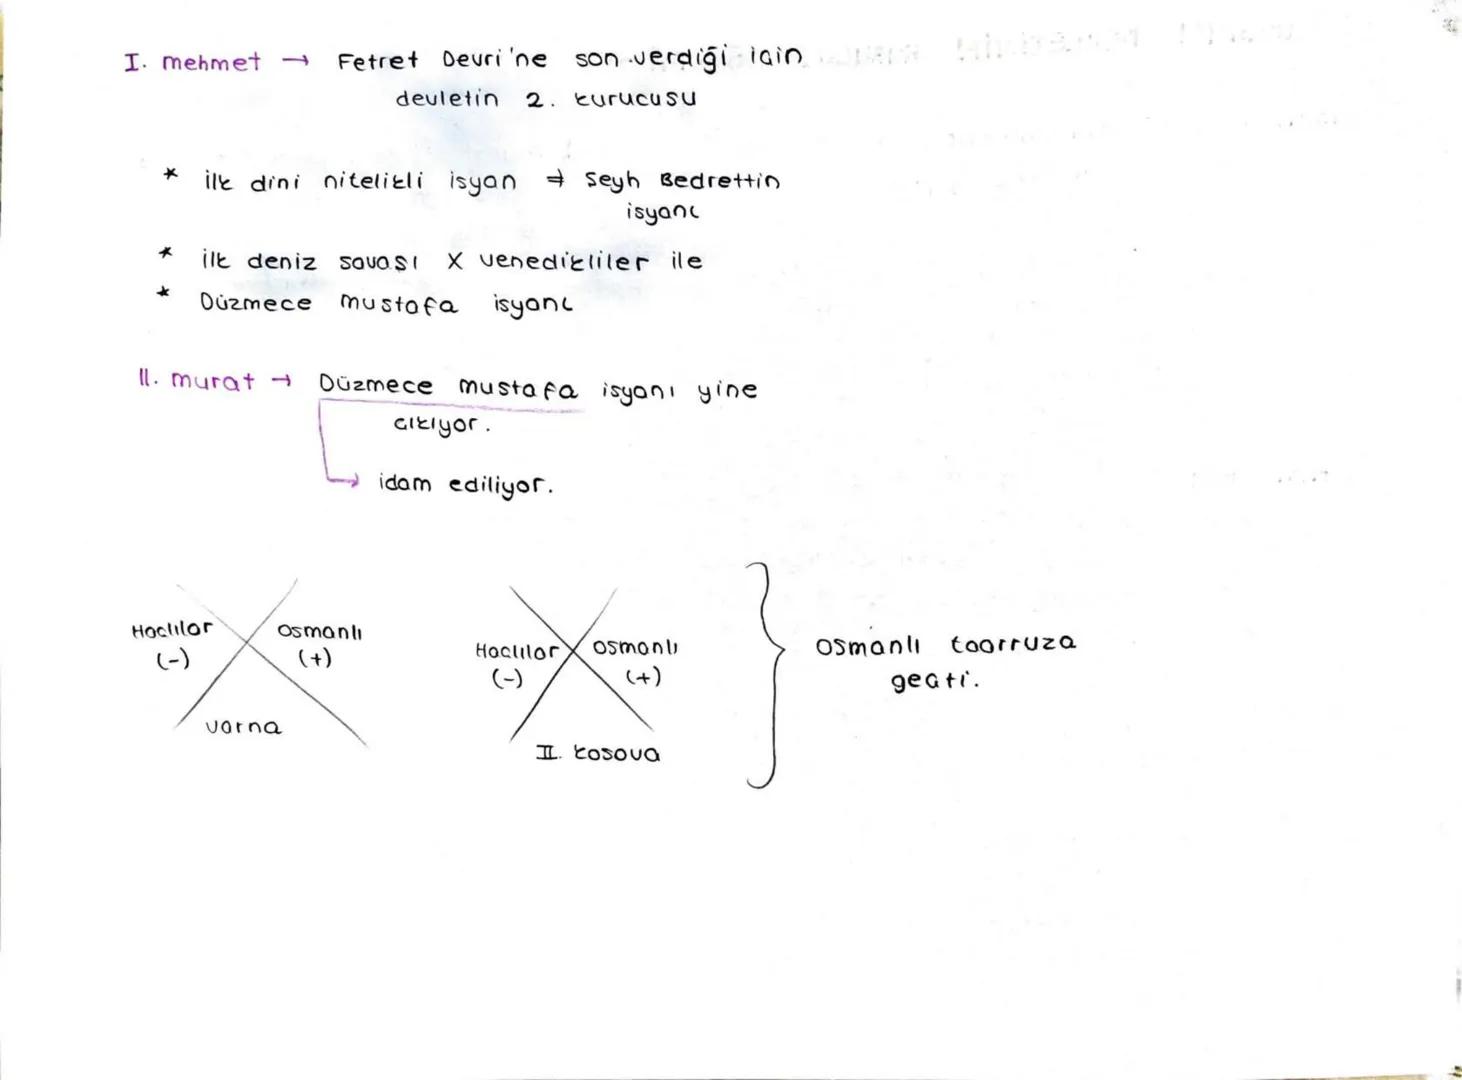 I. mehmet → Fetret Devri'ne son verdiği için
devletin 2. kurucusu
* ilk dini nitelikli isyan → Şeyh Bedrettin
isyanı
* ilk deniz savaşı X venedikliler ile
* Düzmece mustafa isyanı
II. murat → Düzmece mustafa isyanı yine
çıkıyor.
→ idam ediliyor.
Haçlılar (-) Osmanlı (+)
varna
Haçlılar (-) Osmanlı (+)
II. kosova
Osmanlı taarruza
geçti.